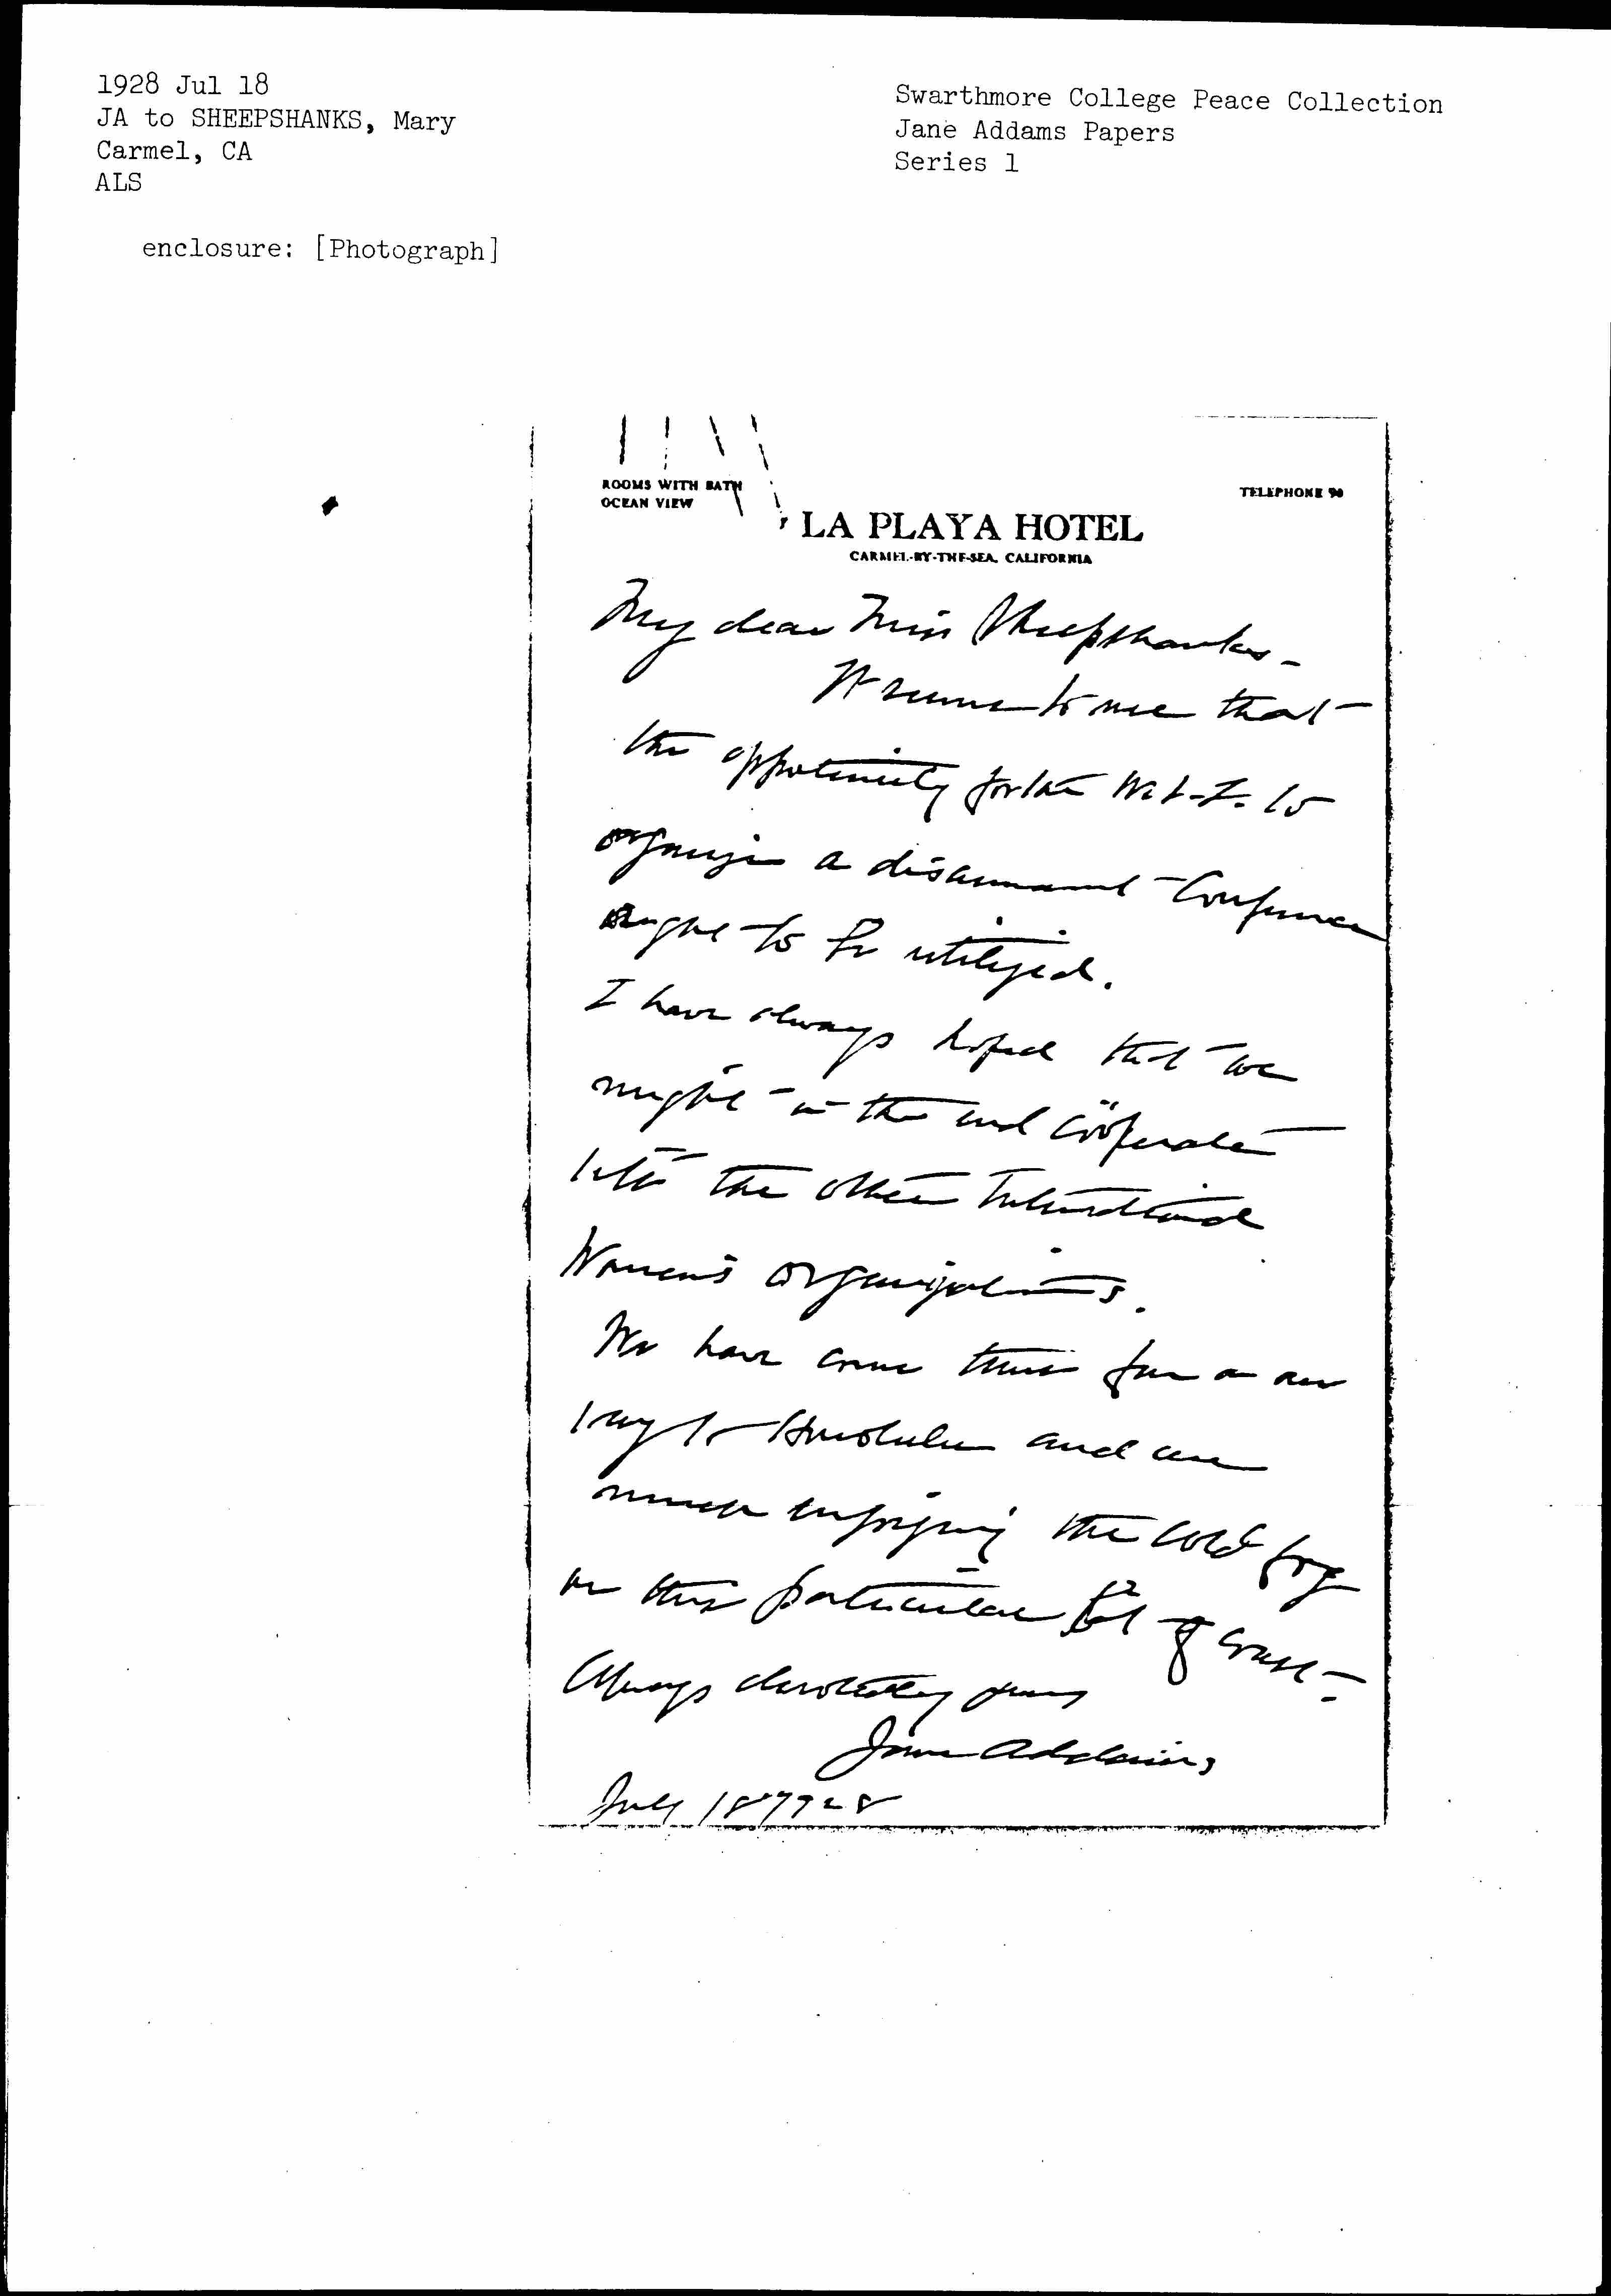 1928 Jul 18
JA to SHEEPSHANKS, Mary
Carmel, CA
ALS
enclosure: [Photograph]
Swarthmore College Peace Collection
Jane Addams Papers
Series 1
ROOMS WITH BATH
OCEAN VIEW
TELEPHONE 90
LA PLAYA HOTEL
CARMEL-BY-THE-SEA, CALIFORNIA
My dear Miss Sheepshanks -
It seems to me that
the opportunity for the W.I.L. to
organize a disarmament Conference
ought to be utilized.
I have always hoped that we
might in the end coöperate
with the other International
Women's organizations.
We have come thus far on our
way to Honolulu and are
much enjoying the cold fog
on this particular of coast -
Always devotedly yours
Jane Addams
July 18" 1928